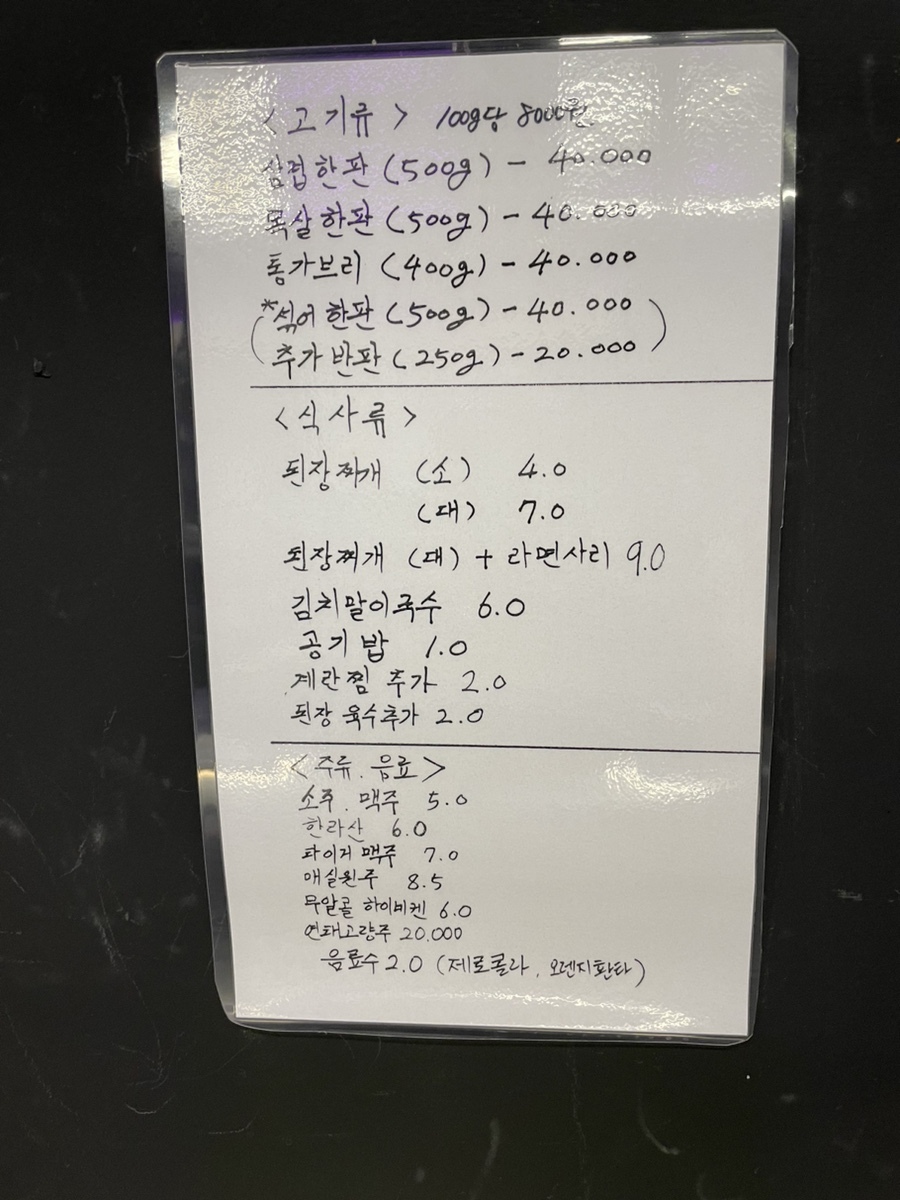 <고기류> 100g당 8000원
삼겹한판 (500g) - 40.000
목살한판 (500g) - 40.000
통가브리 (400g) - 40.000
*섞어한판 (500g) - 40.000
(추가반판 (250g) - 20.000)
<식사류>
된장찌개 (소) 4.0
(대) 7.0
된장찌개 (대) + 라면사리 9.0
김치말이국수 6.0
공기밥 1.0
계란찜 추가 2.0
된장 육수추가 2.0
<주류. 음료>
소주. 맥주 5.0
한라산 6.0
타이거 맥주 7.0
매실원주 8.5
무알콜 하이네켄 6.0
연태고량주 20.000
음료수 2.0 (제로콜라, 오렌지환타)